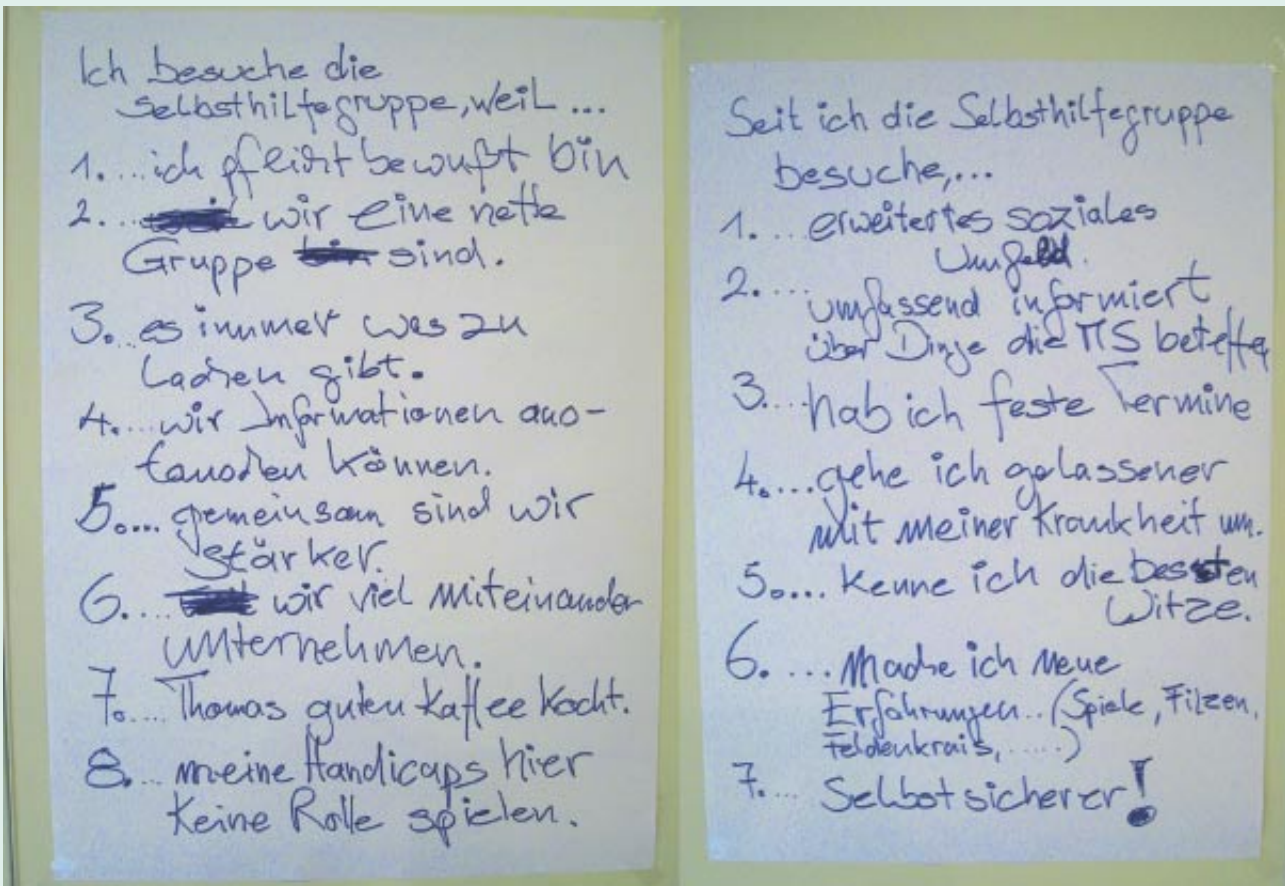 Ich besuche die
Selbsthilfegruppe, weil ...
1. ... ich pflicht bewußt bin
2. ... wir eine nette
Gruppe sind.
3. .. es immer was zu
Lachen gibt.
4. ... wir Informationen aus-
tauschen können.
5. ... gemeinsam sind wir
stärker.
6. ... wir viel miteinander
unternehmen.
7. ... Thomas guten Kaffee kocht.
8. .. meine Handicaps hier
keine Rolle spielen.
Seit ich die Selbsthilfegruppe
besuche,...
1. ... erweitertes soziales
Umfeld.
2. ...
umfassend informiert
über Dinge die MS
3. ... hab ich feste Termine
4. ... gehe ich gelassener
mit meiner Krankheit um.
5. ... kenne ich die besten
Witze.
6. .... mache ich neue
Erfahrungen.. (Spiele, Filzen,
Feldenkrais, .....)
7. ... Selbstsicherer!